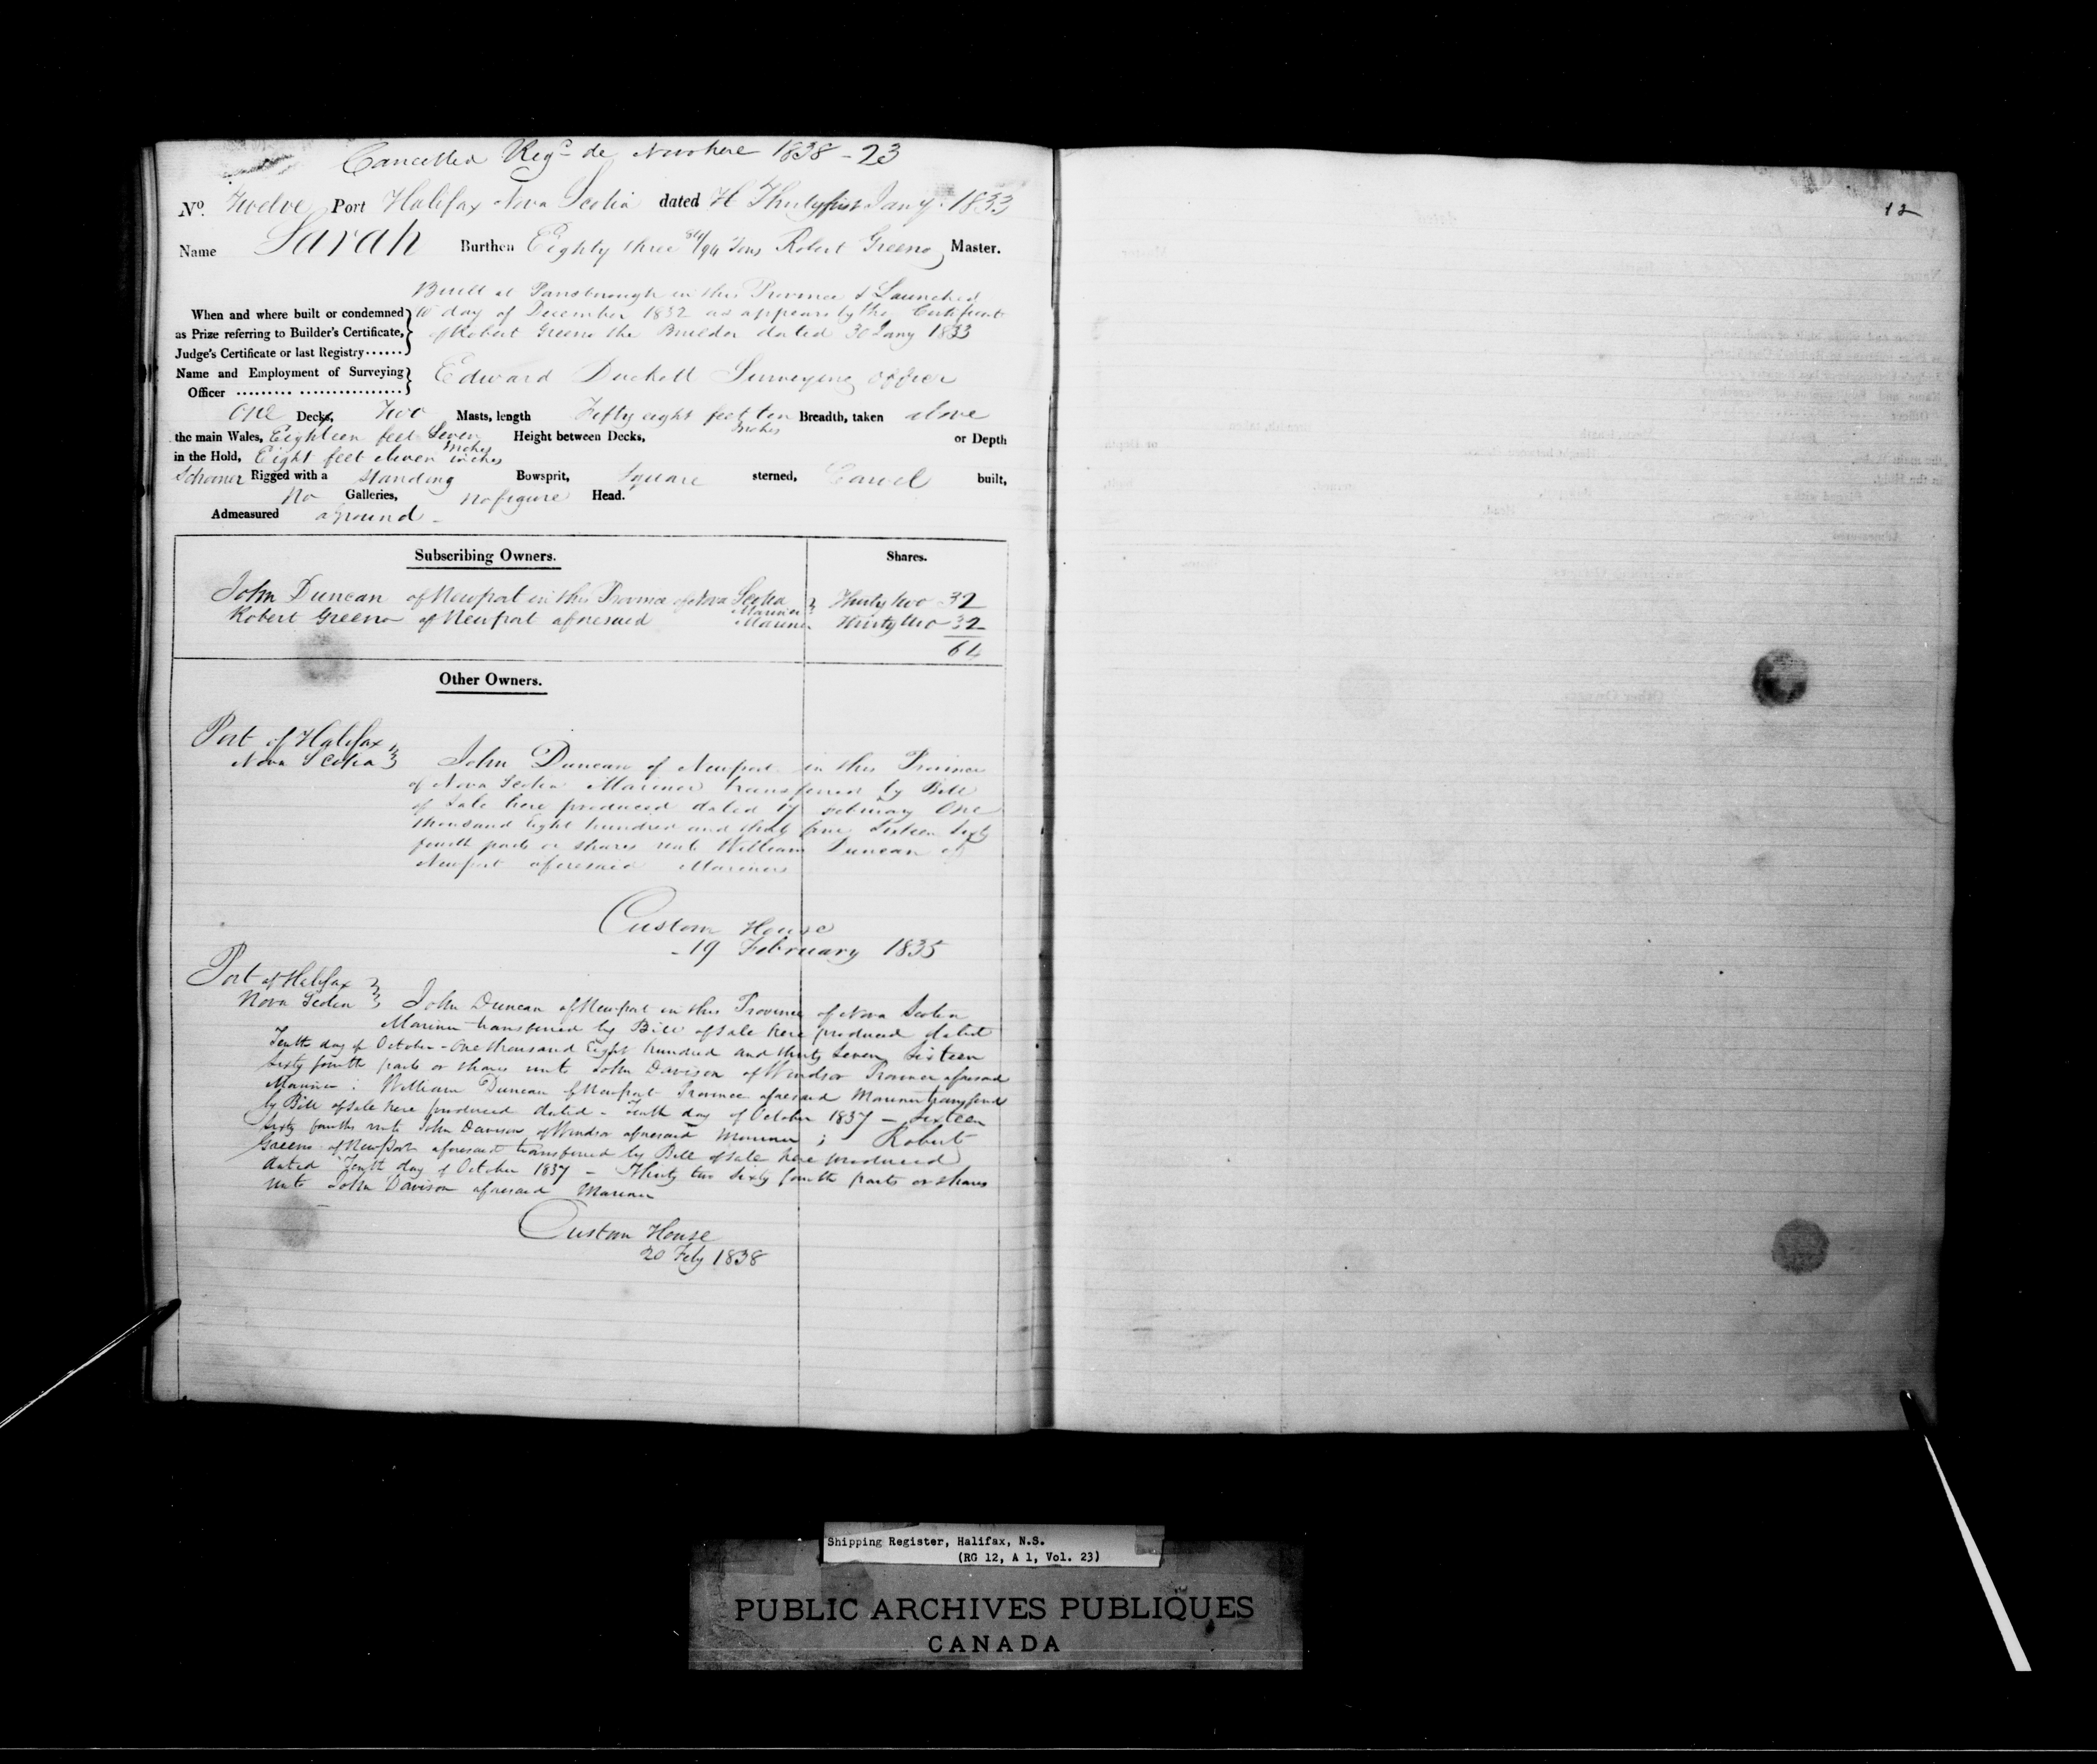 Cancelled Reg? de Novo here 1838 - 23
No. Twelve Port Halifax Nova Scotia dated H Thirty first Jany. 1833
Name Sarah Burthen Eighty three /94 Tons Robert Greeno Master.
Built at Parsborough in this Province & Launched
When and where built or condemned day of December 1832 as appears by the Certificate
as Prize referring to Builder's Certificate, of Robert Greeno the Builder dated 30 Jany 1833
Judge's Certificate or last Registry
Name and Employment of Surveying Edward Duckett Surveying officer
Officer
One Decks, Two Masts, length Fifty eight feet ten Inches Breadth, taken above
the main Wales, Eighteen feet Seven Inches Height between Decks, or Depth
in the Hold, Eight feet eleven inches
Schooner Rigged with a Standing Bowsprit, Square sterned, Carvel built,
No Galleries, no figure Head.
Admeasured aground -
Subscribing Owners. Shares.
John Duncan of Newport in this Province of Nova Scotia Mariner Thirty two 32
Robert Greeno of Newport aforesaid Mariner Thirty two 32
64
Other Owners.
Port of Halifax
Nova Scotia John Duncan of Newport in this Province
of Nova Scotia Mariner transferred by Bill
of Sale here produced dated 17 February One
thousand Eight hundred and thirty five Sixteen Sixty
fourth parts or shares unto William Duncan of
Newport aforesaid Mariner
Custom House
- 19 February 1835
Port of Halifax
Nova Scotia John Duncan of Newport in this Province of Nova Scotia
Mariner transferred by Bill of Sale here produced dated
Tenth day of October - One thousand Eight hundred and thirty Seven Sixteen
Sixty fourth parts or shares unto John Davison of Windsor Province aforesaid
Mariner : William Duncan of Newport Province aforesaid Mariner transferred
by Bill of Sale here produced dated - Tenth day of October 1837 - Sixteen
Sixty fourths unto John Davison of Windsor aforesaid Mariner ; Robert
Greeno of Newport aforesaid transferred by Bill of Sale here produced
dated Tenth day of October 1837 - Thirty two Sixty fourth parts or shares
unto John Davison aforesaid Mariner
Custom House
20 Feby 1838
12
Shipping Register, Halifax, N.S.
(RG 12, A 1, Vol. 23)
PUBLIC ARCHIVES PUBLIQUES
CANADA